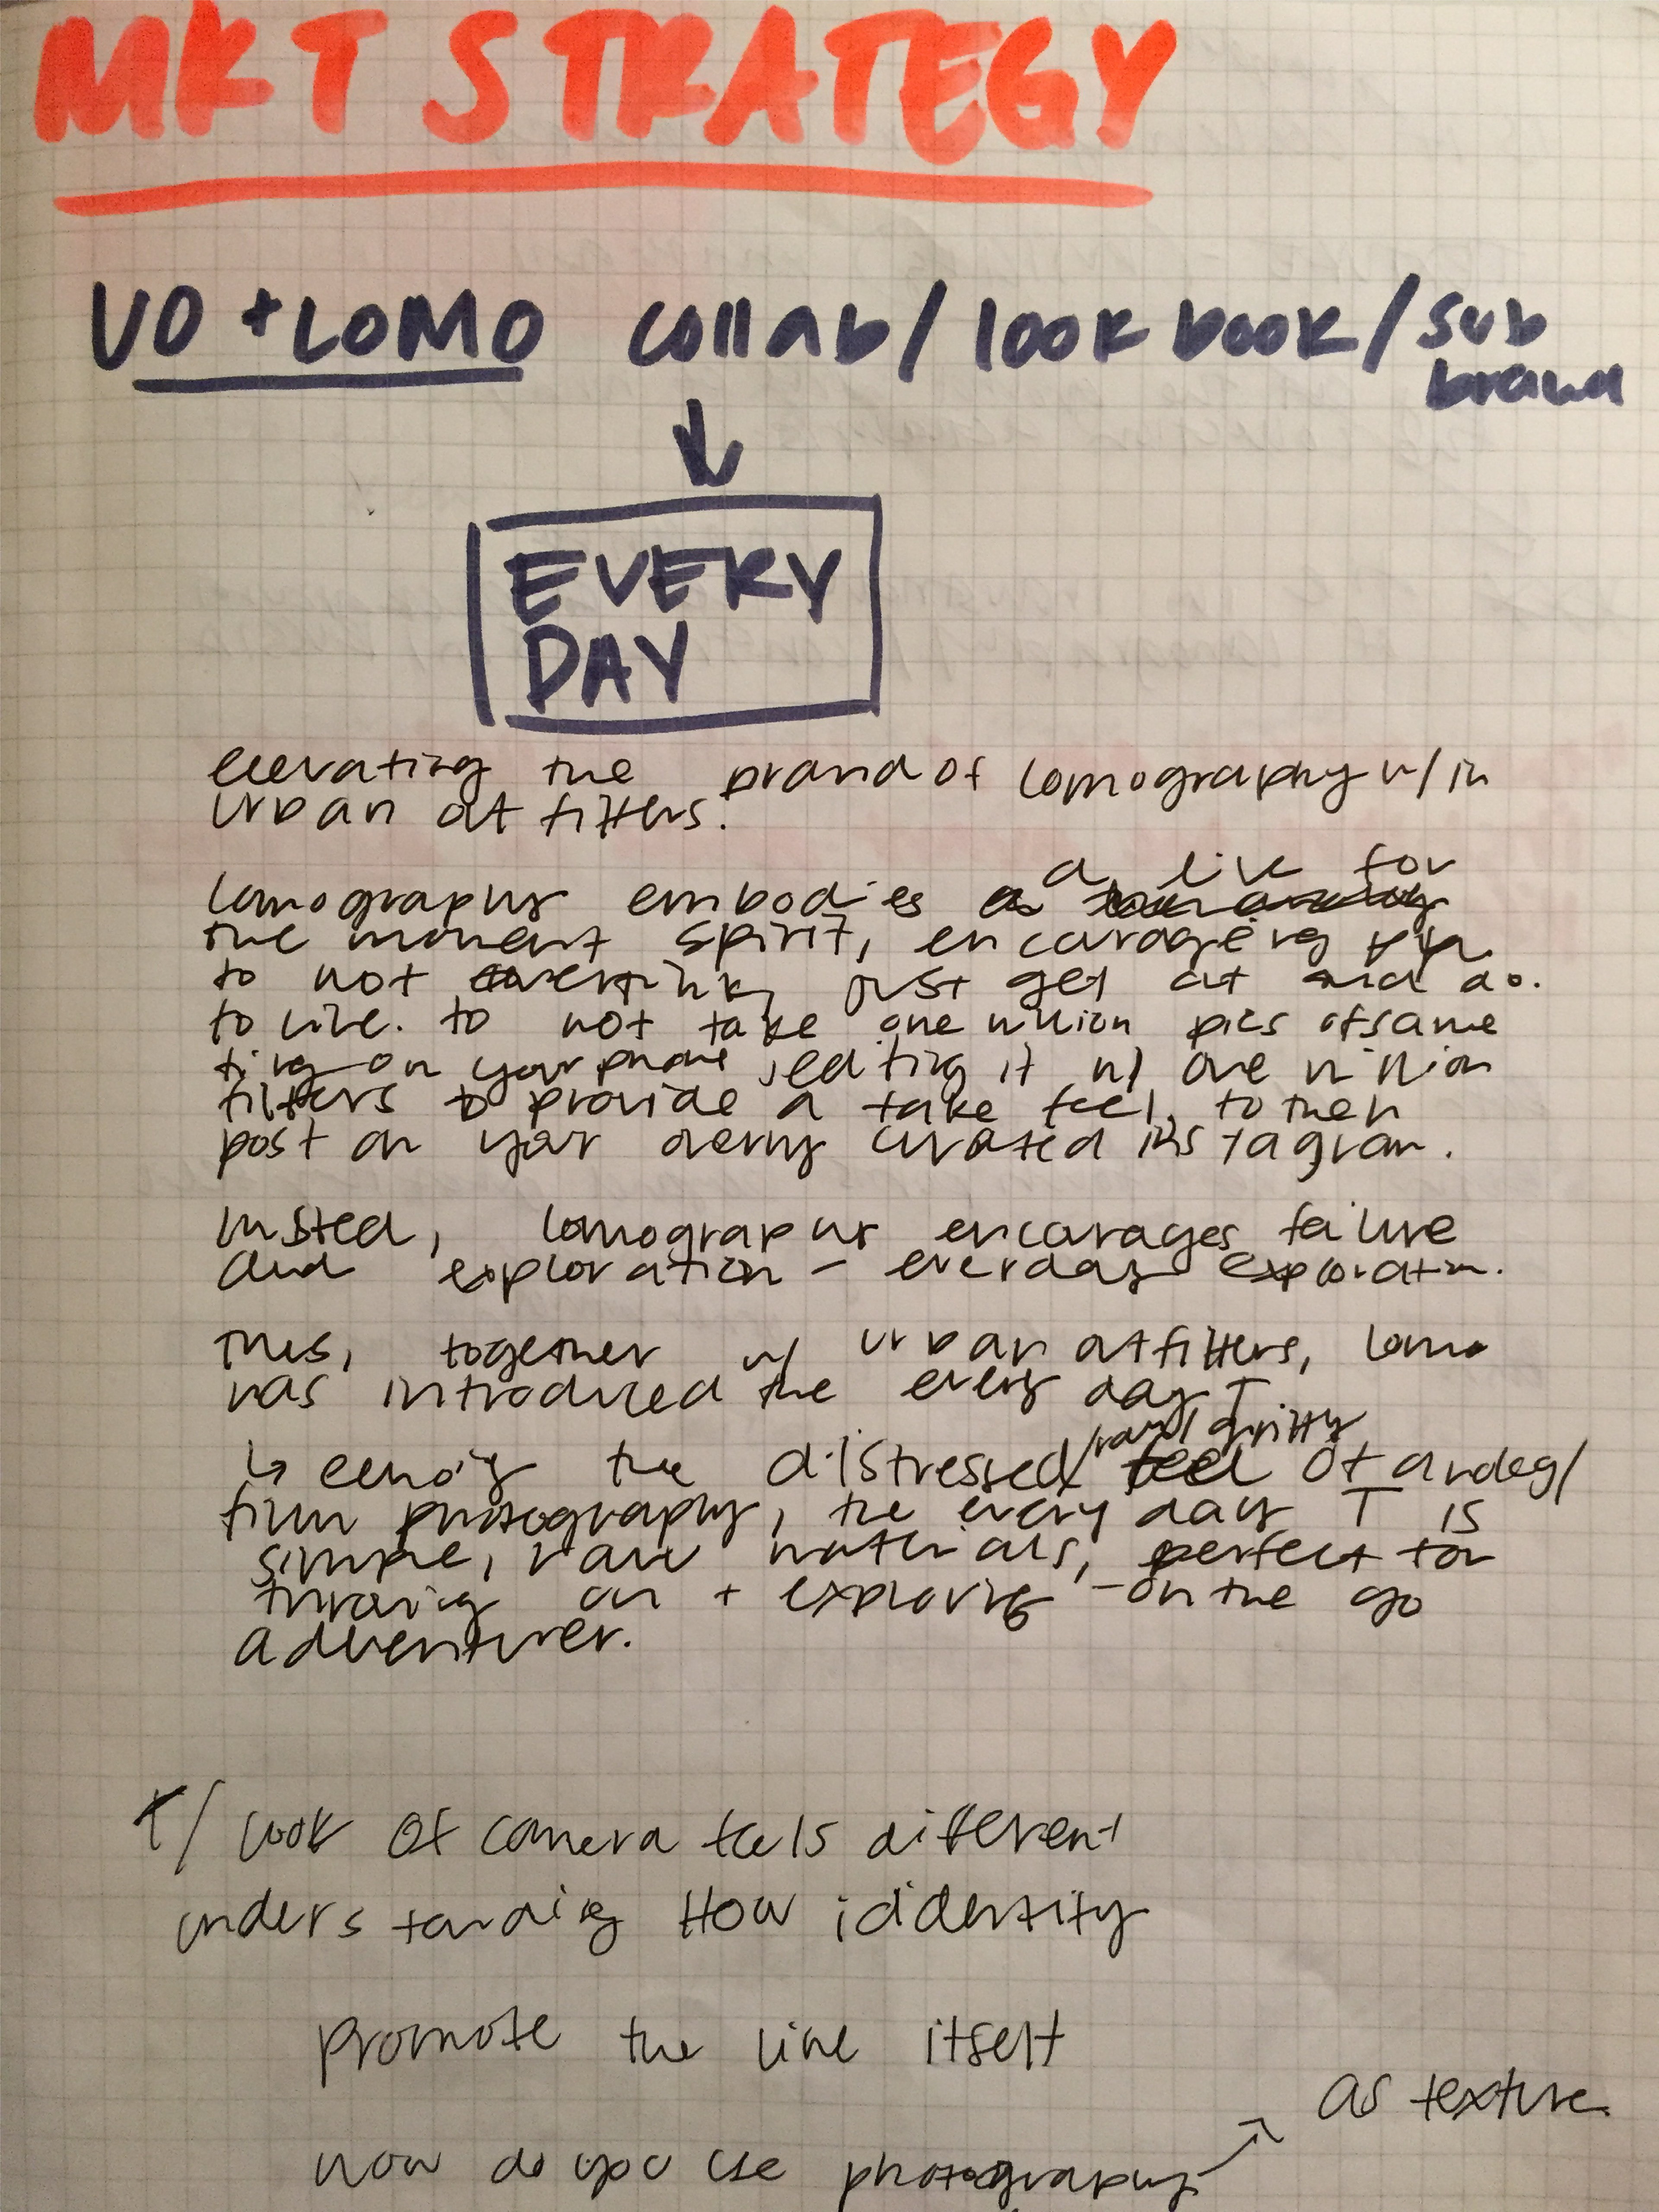 MKT STRATEGY
UO + LOMO collab / look book / sub
brand
EVERY
DAY
elevating the brand of lomography w/in
urban outfitters.
a live for
lomography embodies
the moment spirit, encouraging
to not overthink, just get out and do.
to live. to not take one million pics of same
thing on your phone, editing it w/ one million
filters to provide a fake feel, to then
post on your overly curated instagram.
insted, lomography encourages failure
and exploration – everyday exploration.
this, together w/ urban outfitters, lomo
has introduced the every day T
raw/gritty
↳ echoing the distressed/ feel of analog/
film photography, the every day T is
simple, raw materials, perfect for
throwing on + exploring – on the go
adventurer.
T/ look of camera feels different
understanding How ididentity
promote the line itself
as texture
how do you use photography